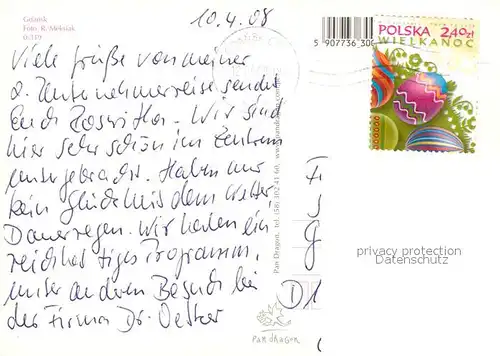 Gdańsk
Foto. R. Meksiak
G-319
10.4.08
Viele Grüße von meiner
2. Unternehmerreise sendet
Euch Roswitha. Wir sind
hier sehr schön im Zentrum
untergebracht. Haben nur
kein Glück mit dem Wetter
Dauerregen. Wir haben ein
reichhaltiges Programm,
unter anderem Besuch bei
der Firma Dr. Oetker
5 907736 300
POLSKA 240zł
WIELKANOC
Pan Dragon, tel. (58) 302 41 60, www.pandragon.com
PAN DRAGON
F
J
G
D1
privacy protection
Datenschutz